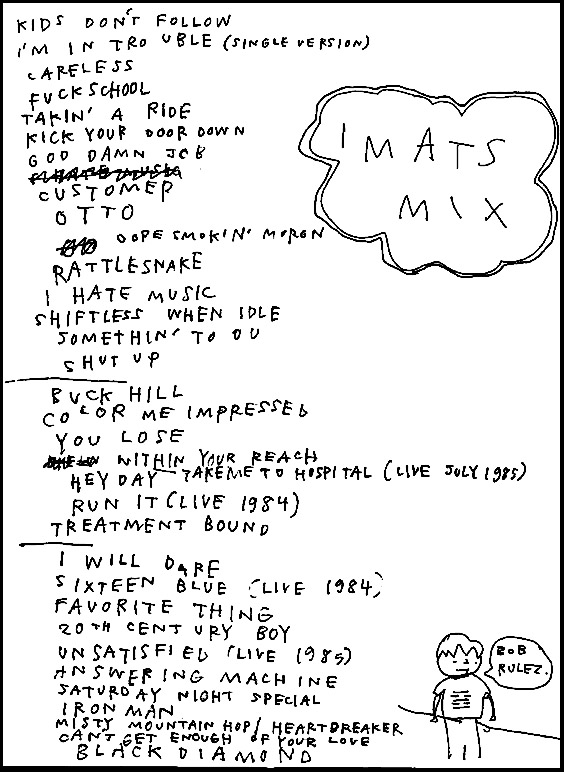 KIDS DON'T FOLLOW
I'M IN TROUBLE (SINGLE VERSION)
CARELESS
FUCKSCHOOL
TAKIN' A RIDE
KICK YOUR DOOR DOWN
GOD DAMN JOB
I HATE MUSIC
CUSTOMER
OTTO
DOPE SMOKIN' MORON
RATTLESNAKE
I HATE MUSIC
SHIFTLESS WHEN IDLE
SOMETHIN' TO DU
SHUT UP
BUCK HILL
COLOR ME IMPRESSED
YOU LOSE
WITHIN YOUR REACH
HEYDAY - TAKE ME TO HOSPITAL (LIVE JULY 1985)
RUN IT (LIVE 1984)
TREATMENT BOUND
I WILL DARE
SIXTEEN BLUE (LIVE 1984)
FAVORITE THING
20TH CENTURY BOY
UNSATISFIED (LIVE 1985)
ANSWERING MACHINE
SATURDAY NIGHT SPECIAL
IRON MAN
MISTY MOUNTAIN HOP/HEARTBREAKER
CAN'T GET ENOUGH OF YOUR LOVE
BLACK DIAMOND
'MATS
MIX
BOB
RULEZ.